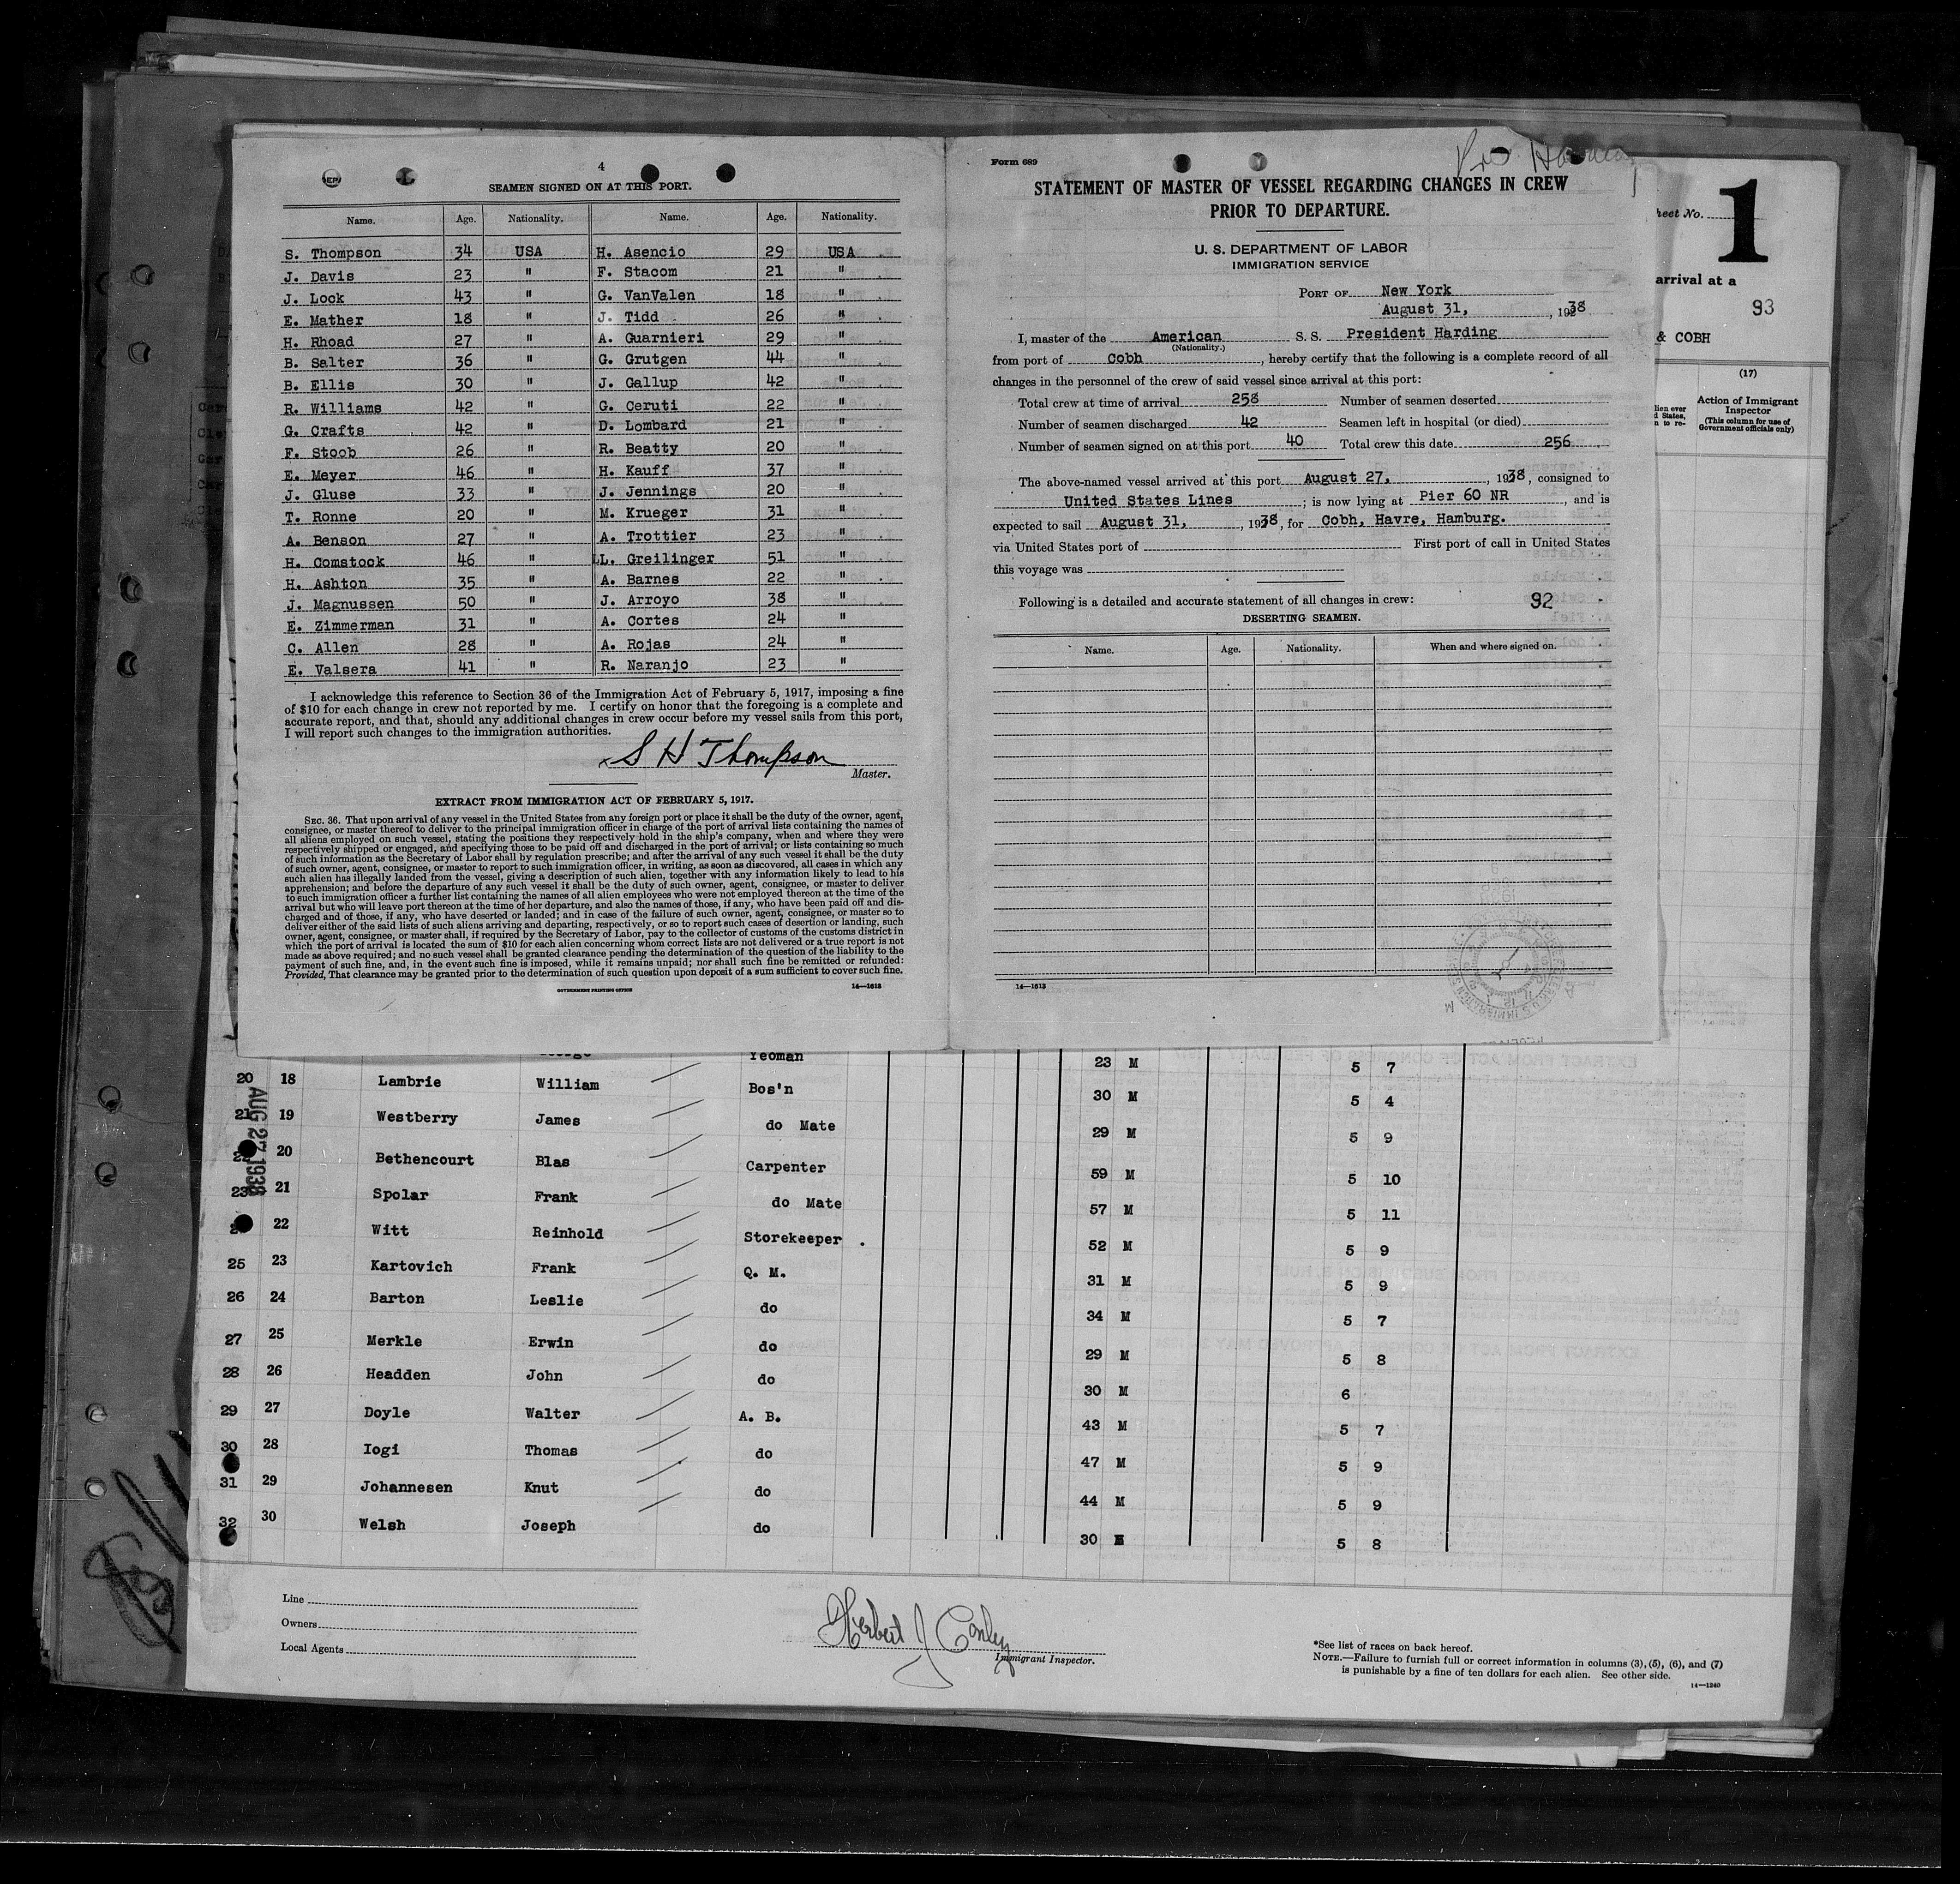 4
SEAMEN SIGNED ON AT THIS PORT.
Name. Age. Nationality. Name. Age. Nationality.
S. Thompson 34 USA H. Asencio 29 USA
J. Davis 23 " F. Stacom 21 "
J. Lock 43 " G. VanValen 18 "
E. Mather 18 " J. Tidd 26 "
H. Rhoad 27 " A. Guarnieri 29 "
B. Salter 36 " G. Grutgen 44 "
B. Ellis 30 " J. Gallup 42 "
R. Williams 42 " G. Ceruti 22 "
G. Crafts 42 " D. Lombard 21 "
F. Stoob 26 " R. Beatty 20 "
E. Meyer 46 " H. Kauff 37 "
J. Gluse 33 " J. Jennings 20 "
T. Ronne 20 " M. Krueger 31 "
A. Benson 27 " A. Trottier 23 "
H. Comstock 46 " LL. Greilinger 51 "
H. Ashton 35 " A. Barnes 22 "
J. Magnussen 50 " J. Arroyo 38 "
E. Zimmerman 31 " A. Cortes 24 "
C. Allen 28 " A. Rojas 24 "
E. Valsera 41 " R. Naranjo 23 "
I acknowledge this reference to Section 36 of the Immigration Act of February 5, 1917, imposing a fine
of $10 for each change in crew not reported by me. I certify on honor that the foregoing is a complete and
accurate report, and that, should any additional changes in crew occur before my vessel sails from this port,
I will report such changes to the immigration authorities.
x S H Thompson
Master.
EXTRACT FROM IMMIGRATION ACT OF FEBRUARY 5, 1917.
SEC. 36. That upon arrival of any vessel in the United States from any foreign port or place it shall be the duty of the owner, agent,
consignee, or master thereof to deliver to the principal immigration officer in charge of the port of arrival lists containing the names of
all aliens employed on such vessel, stating the positions they respectively hold in the ship's company, when and where they were
respectively shipped or engaged, and specifying those to be paid off and discharged in the port of arrival; or lists containing so much
of such information as the Secretary of Labor shall by regulation prescribe; and after the arrival of any such vessel it shall be the duty
of such owner, agent, consignee, or master to report to such immigration officer, in writing, as soon as discovered, all cases in which any
such alien has illegally landed from the vessel, giving a description of such alien, together with any information likely to lead to his
apprehension; and before the departure of any such vessel it shall be the duty of such owner, agent, consignee, or master to deliver
to such immigration officer a further list containing the names of all alien employees who were not employed thereon at the time of the
arrival but who will leave port thereon at the time of her departure, and also the names of those, if any, who have been paid off and dis-
charged and of those, if any, who have deserted or landed; and in case of the failure of such owner, agent, consignee, or master so to
deliver either of the said lists of such aliens arriving and departing, respectively, or so to report such cases of desertion or landing, such
owner, agent, consignee, or master shall, if required by the Secretary of Labor, pay to the collector of customs of the customs district in
which the port of arrival is located the sum of $10 for each alien concerning whom correct lists are not delivered or a true report is not
made as above required; and no such vessel shall be granted clearance pending the determination of the question of the liability to the
payment of such fine, and, in the event such fine is imposed, while it remains unpaid; nor shall such fine be remitted or refunded:
Provided, That clearance may be granted prior to the determination of such question upon deposit of a sum sufficient to cover such fine.
GOVERNMENT PRINTING OFFICE 14—1613
Form 689
STATEMENT OF MASTER OF VESSEL REGARDING CHANGES IN CREW
PRIOR TO DEPARTURE.
U. S. DEPARTMENT OF LABOR
IMMIGRATION SERVICE
PORT OF New York
August 31, , 1938
I, master of the American S. S. President Harding
(Nationality.)
from port of Cobh , hereby certify that the following is a complete record of all
changes in the personnel of the crew of said vessel since arrival at this port:
Total crew at time of arrival 258 Number of seamen deserted
Number of seamen discharged 42 Seamen left in hospital (or died)
Number of seamen signed on at this port 40 Total crew this date 256
The above-named vessel arrived at this port August 27, , 1938, consigned to
United States Lines ; is now lying at Pier 60 NR , and is
expected to sail August 31, , 1938, for Cobh, Havre, Hamburg.
via United States port of First port of call in United States
this voyage was
Following is a detailed and accurate statement of all changes in crew: 92
DESERTING SEAMEN.
Name. Age. Nationality. When and where signed on.
14—1613
heet No. 1
arrival at a
93
& COBH
(17)
lien ever
d States,
n to re-
Action of Immigrant
Inspector
(This column for use of
Government officials only)
George Yeoman 23 M 5 7
20 18 Lambrie William Bos'n 30 M 5 4
21 19 Westberry James do Mate 29 M 5 9
20 Bethencourt Blas Carpenter 59 M 5 10
23 21 Spolar Frank do Mate 57 M 5 11
22 Witt Reinhold Storekeeper . 52 M 5 9
25 23 Kartovich Frank Q. M. 31 M 5 9
26 24 Barton Leslie do 34 M 5 7
27 25 Merkle Erwin do 29 M 5 8
28 26 Headden John do 30 M 6
29 27 Doyle Walter A. B. 43 M 5 7
30 28 Iogi Thomas do 47 M 5 9
31 29 Johannesen Knut do 44 M 5 9
32 30 Welsh Joseph do 30 5 8
AUG 27 1938
Line
Owners
Local Agents
Herbert J Conley
Immigrant Inspector.
*See list of races on back hereof.
NOTE.—Failure to furnish full or correct information in columns (3), (5), (6), and (7)
is punishable by a fine of ten dollars for each alien. See other side.
14—1240